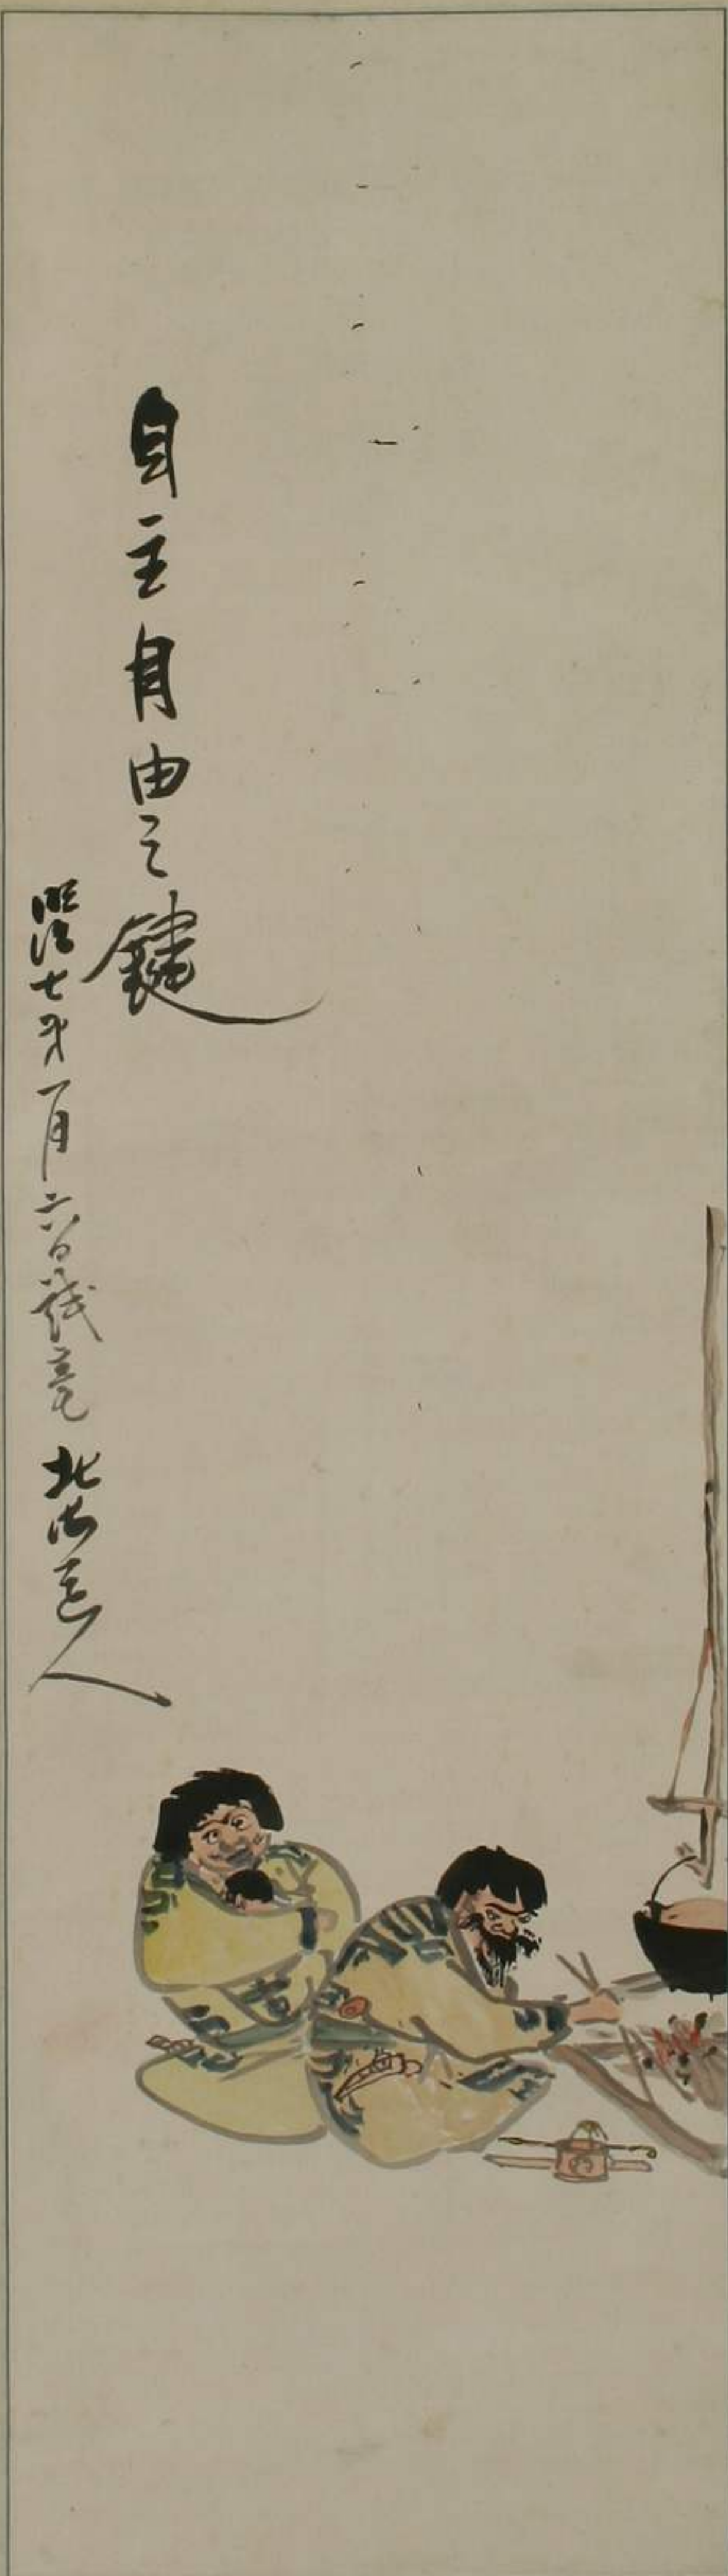 自主自由之鍵
明治七年一月六日戯毫 北海道人